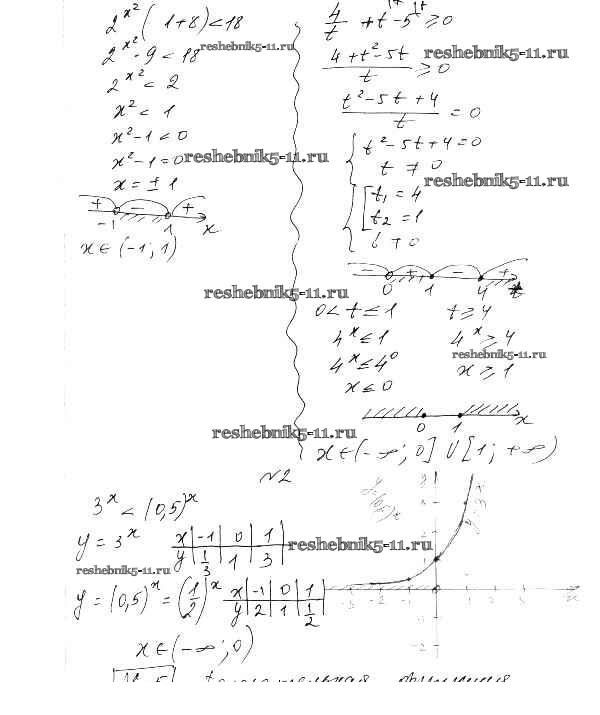 2^{x²}(1+8)<18
2^{x²}·9<18
2^{x²}<2
x²<1
x²-1<0
x²-1=0
x=±1
+ − +
-1 1 x
x∈(-1;1)
4/t + t-5≥0
(4+t²-5t)/t ≥0
(t²-5t+4)/t =0
{ t²-5t+4=0
t≠0
{ [ t₁=4
t₂=1
t≠0
− + − +
0 1 4 t
0<t≤1 t≥4
4^x≤1 4^x≥4
4^x≤4^0 x≥1
x≤0
0 1 x
x∈(-∞;0]∪[1;+∞)
N2
3^x<(0,5)^x
y=3^x
x -1 0 1
y 1/3 1 3
y=(0,5)^x=(1/2)^x
x -1 0 1
y 2 1 1/2
x∈(-∞;0)
y=3^x
y
x
-2
reshebnik5-11.ru
reshebnik5-11.ru
reshebnik5-11.ru
reshebnik5-11.ru
reshebnik5-11.ru
reshebnik5-11.ru
reshebnik5-11.ru
reshebnik5-11.ru
reshebnik5-11.ru